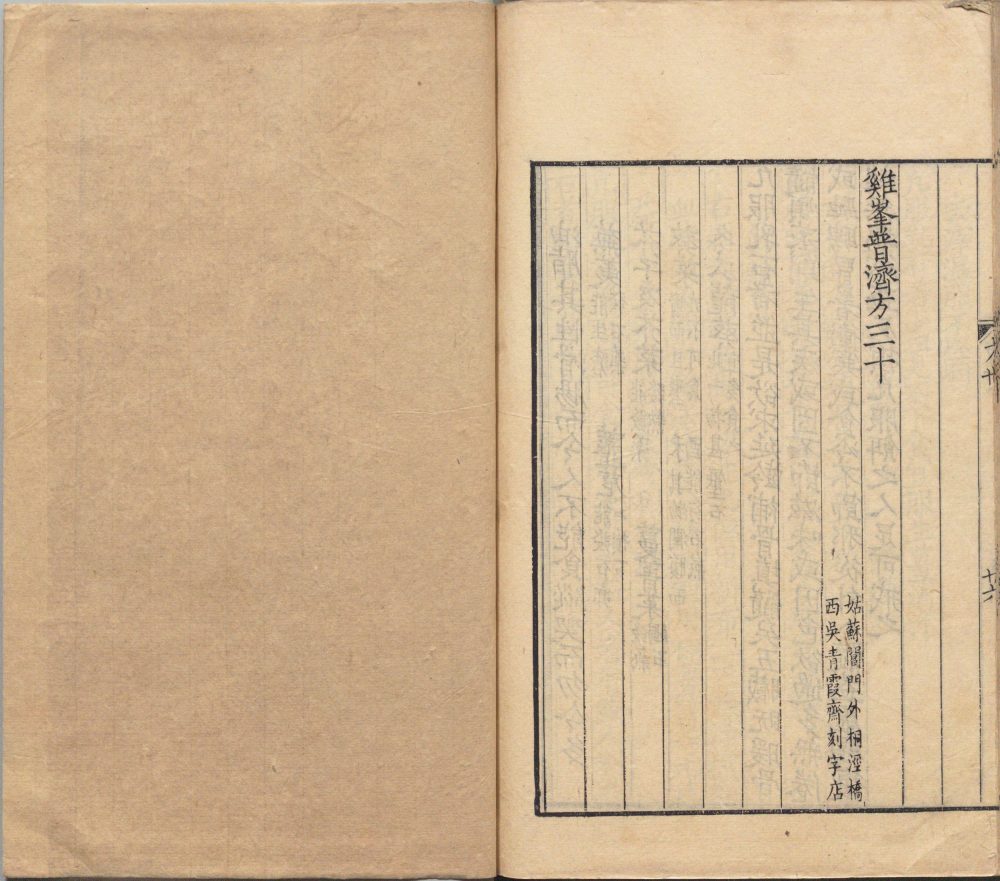 雞峯普濟方三十
姑蘇閶門外桐涇橋
西吳青霞齋刻字店
廿六